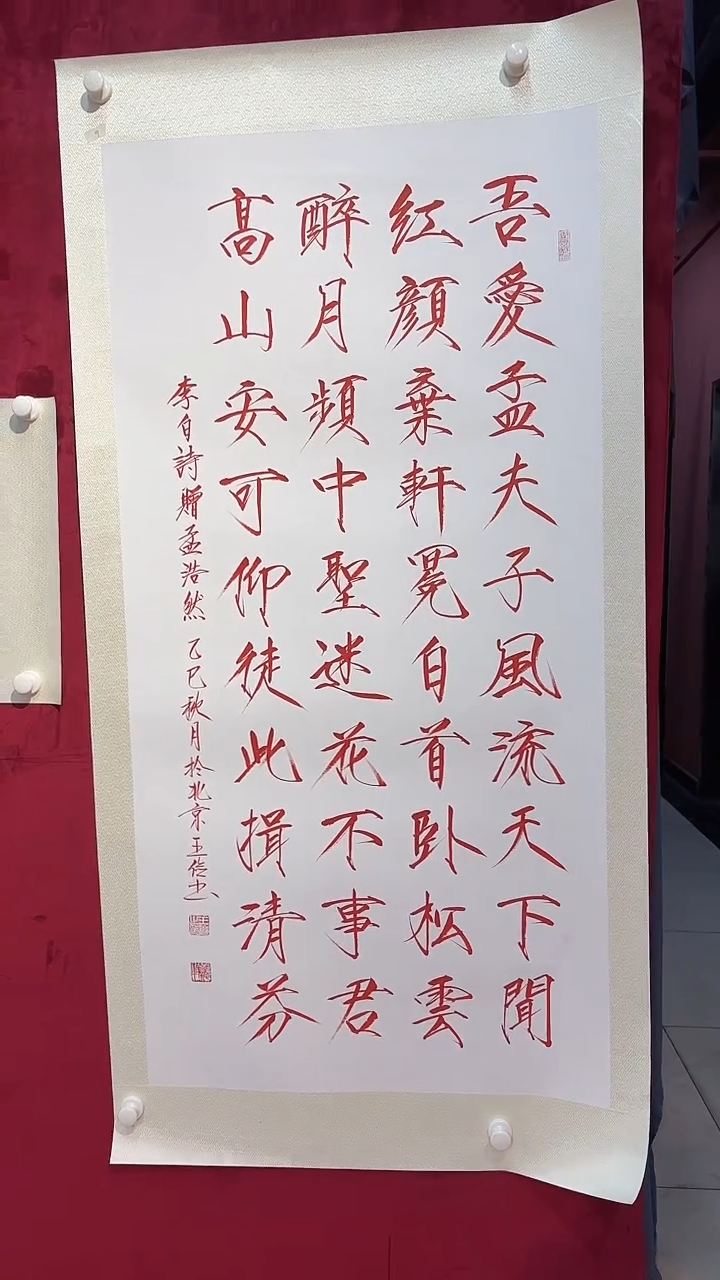 吾愛孟夫子風流天下聞
紅顔棄軒冕白首臥松雲
醉月頻中聖迷花不事君
高山安可仰徒此揖清芬
李白詩贈孟浩然 乙巳秋月於北京王信书